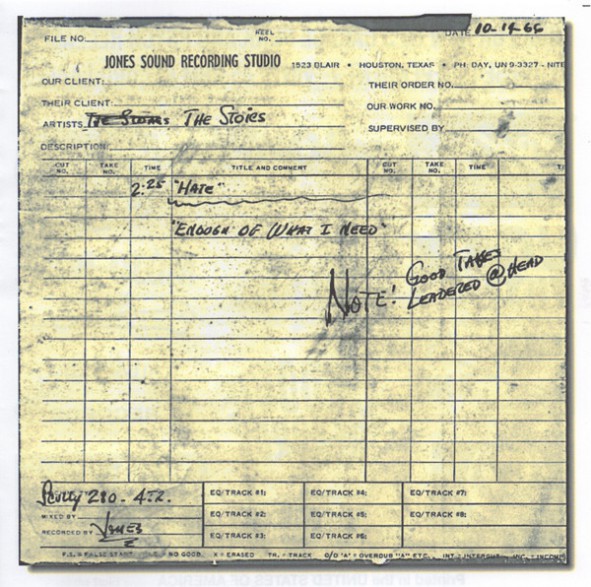 FILE NO. REEL NO. DATE 10-14-66
JONES SOUND RECORDING STUDIO 1523 BLAIR • HOUSTON, TEXAS • PH: DAY, UN 9-3327 - NITE
OUR CLIENT: THEIR ORDER NO.
THEIR CLIENT OUR WORK NO.
ARTISTS The Stoics
SUPERVISED BY
DESCRIPTION:
CUT NO. TAKE NO. TIME TITLE AND COMMENT CUT NO. TAKE NO. TIME
2:25 "HATE"
"ENOUGH OF WHAT I NEED"
NOTE! GOOD TAKES
LEADERED @ HEAD
Scully 280-4T.
MIXED BY
RECORDED BY JONES
EQ/TRACK #1: EQ/TRACK #4: EQ/TRACK #7:
EQ/TRACK #2: EQ/TRACK #5: EQ/TRACK #8:
EQ/TRACK #3: EQ/TRACK #6:
F.S. = FALSE START NO GOOD. X = ERASED TR. = TRACK O/D "A" = OVERDUB "A" ETC.